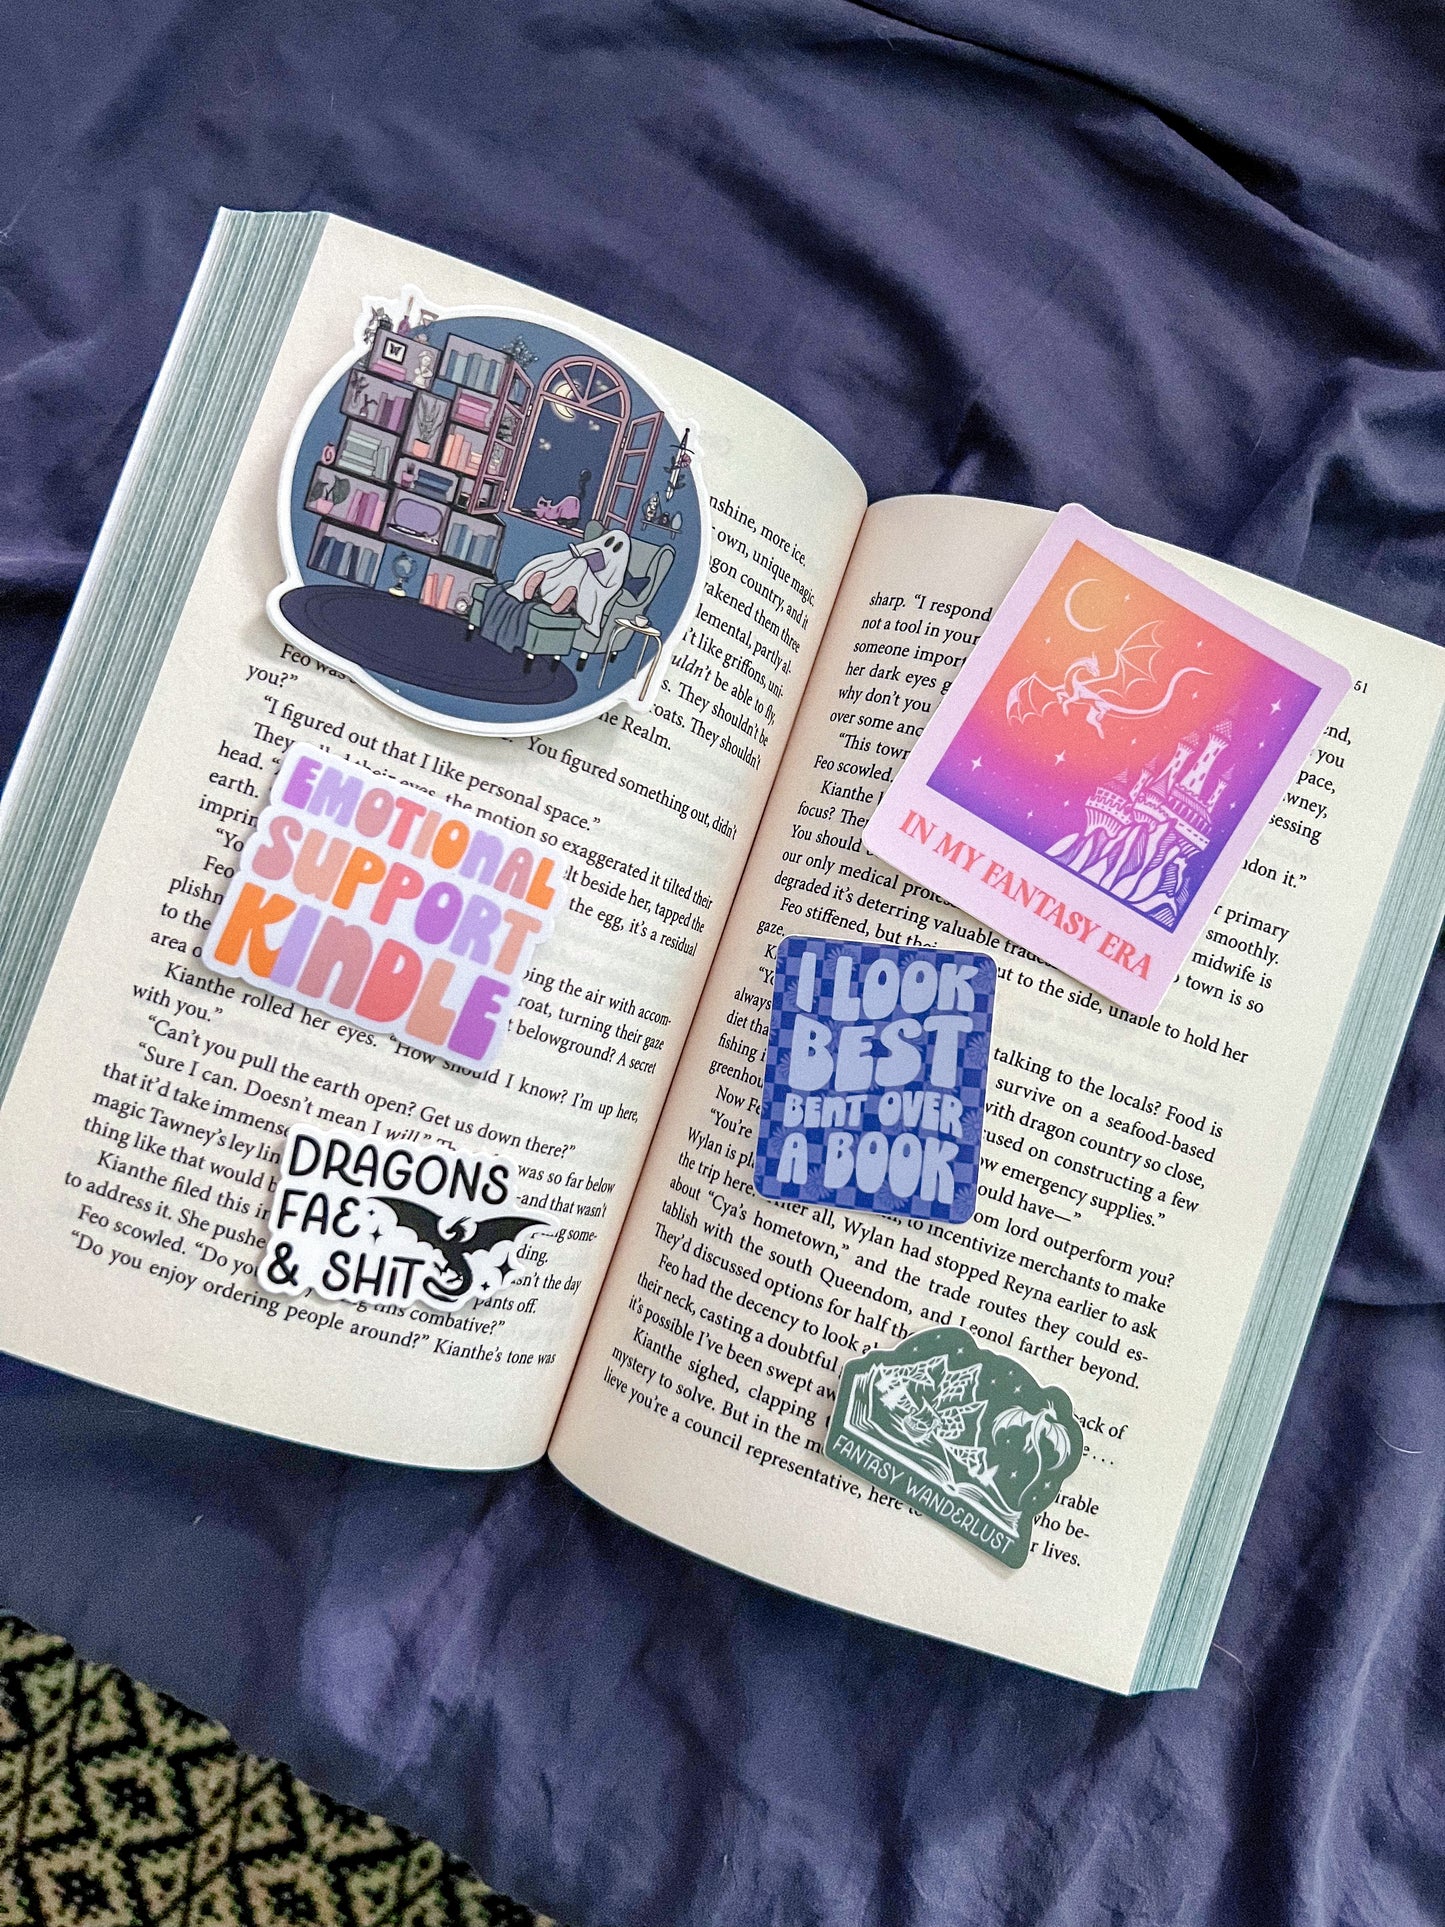 nshine, more ice.
own, unique magic.
gon country, and it
wakened them three
lemental, partly al-
't like griffons, uni-
uldn't be able to fly,
roats. They shouldn't
Feo was
he Realm.
They shouldn't
you?"
You figured something out, didn't
"I figured out that I like personal space."
They
their eyes, the motion so exaggerated it tilted their
head.
lt beside her, tapped the
earth.
the egg, it's a residual
imprin
EMOTIONAL
SUPPORT
KINDLE
"Yo
Feo
plishm
ping the air with accom-
to the
roat, turning their gaze
area o
t belowground? A secret
Kianthe rolled her eyes. "How should I know? I'm up here,
with you."
"Can't you pull the earth open? Get us down there?"
"Sure I can. Doesn't mean I will."
was so far below
that it'd take immense
-and that wasn't
magic Tawney's ley lin
some-
thing like that would b
ding.
Kianthe filed this in
sn't the day
to address it. She pushe
pants off.
DRAGONS
FAE
& SHIT
Feo scowled. "Do you
this combative?"
"Do you enjoy ordering people around?" Kianthe's tone was
51
sharp. "I respond
not a tool in your
someone import
her dark eyes g
why don't you
over some anc
"This town
Feo scowled.
Kianthe
focus? Ther
You should
our only medical profes
degraded it's deterring valuable trade
Feo stiffened, but thei
gaze.
end,
you
pace,
wney,
sessing
don it."
r primary
smoothly.
midwife is
town is so
IN MY FANTASY ERA
out to the side, unable to hold her
always
diet tha
fishing i
greenhou
talking to the locals? Food is
survive on a seafood-based
with dragon country so close,
cused on constructing a few
ow emergency supplies."
ould have—"
I LOOK
BEST
BENT OVER
A BOOK
Now Fe
om lord outperform you?
"You're
Wylan is pl
to incentivize merchants to make
the trip here. After all, Wylan had stopped Reyna earlier to ask
about "Cya's hometown," and the trade routes they could es-
tablish with the south Queendom, and Leonol farther beyond.
They'd discussed options for half the
Feo had the decency to look a
back of
their neck, casting a doubtful
it's possible I've been swept aw
Kianthe sighed, clapping
irable
mystery to solve. But in the m
who be-
lieve you're a council representative, here to
r lives.
FANTASY WANDERLUST